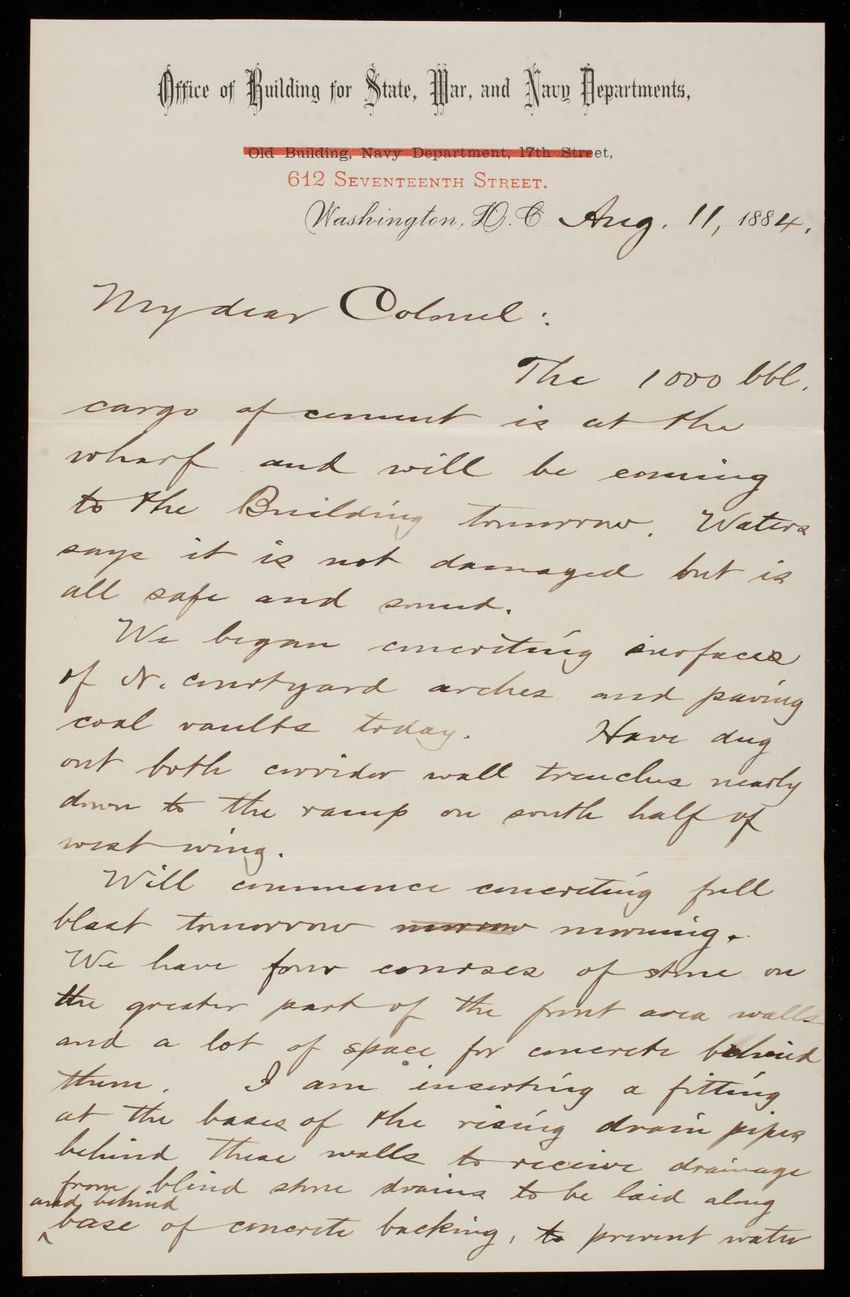 Office of Building for State, War, and Navy Departments,
Old Building, Navy Department, 17th Street,
612 Seventeenth Street.
Washington, D.C. Aug. 11, 1884.
My dear Colonel:
The 1000 bbl.
cargo of cement is at the
wharf and will be coming
to the Building tomorrow. Waters
says it is not damaged but is
all safe and sound.
We began concreting surfaces
of N. courtyard arches and paving
coal vaults today. Have dug
out both corridor wall trenches nearly
down to the ramp on south half of
west wing.
Will commence concreting full
blast tomorrow morrow morning.
We have four courses of stone on
the greater part of the front area walls
and a lot of space for concrete behind
them. I am inserting a fitting
at the bases of the rising drain pipes
behind these walls to receive drainage
from blind stone drains to be laid along
and behind
base of concrete backing, to prevent water